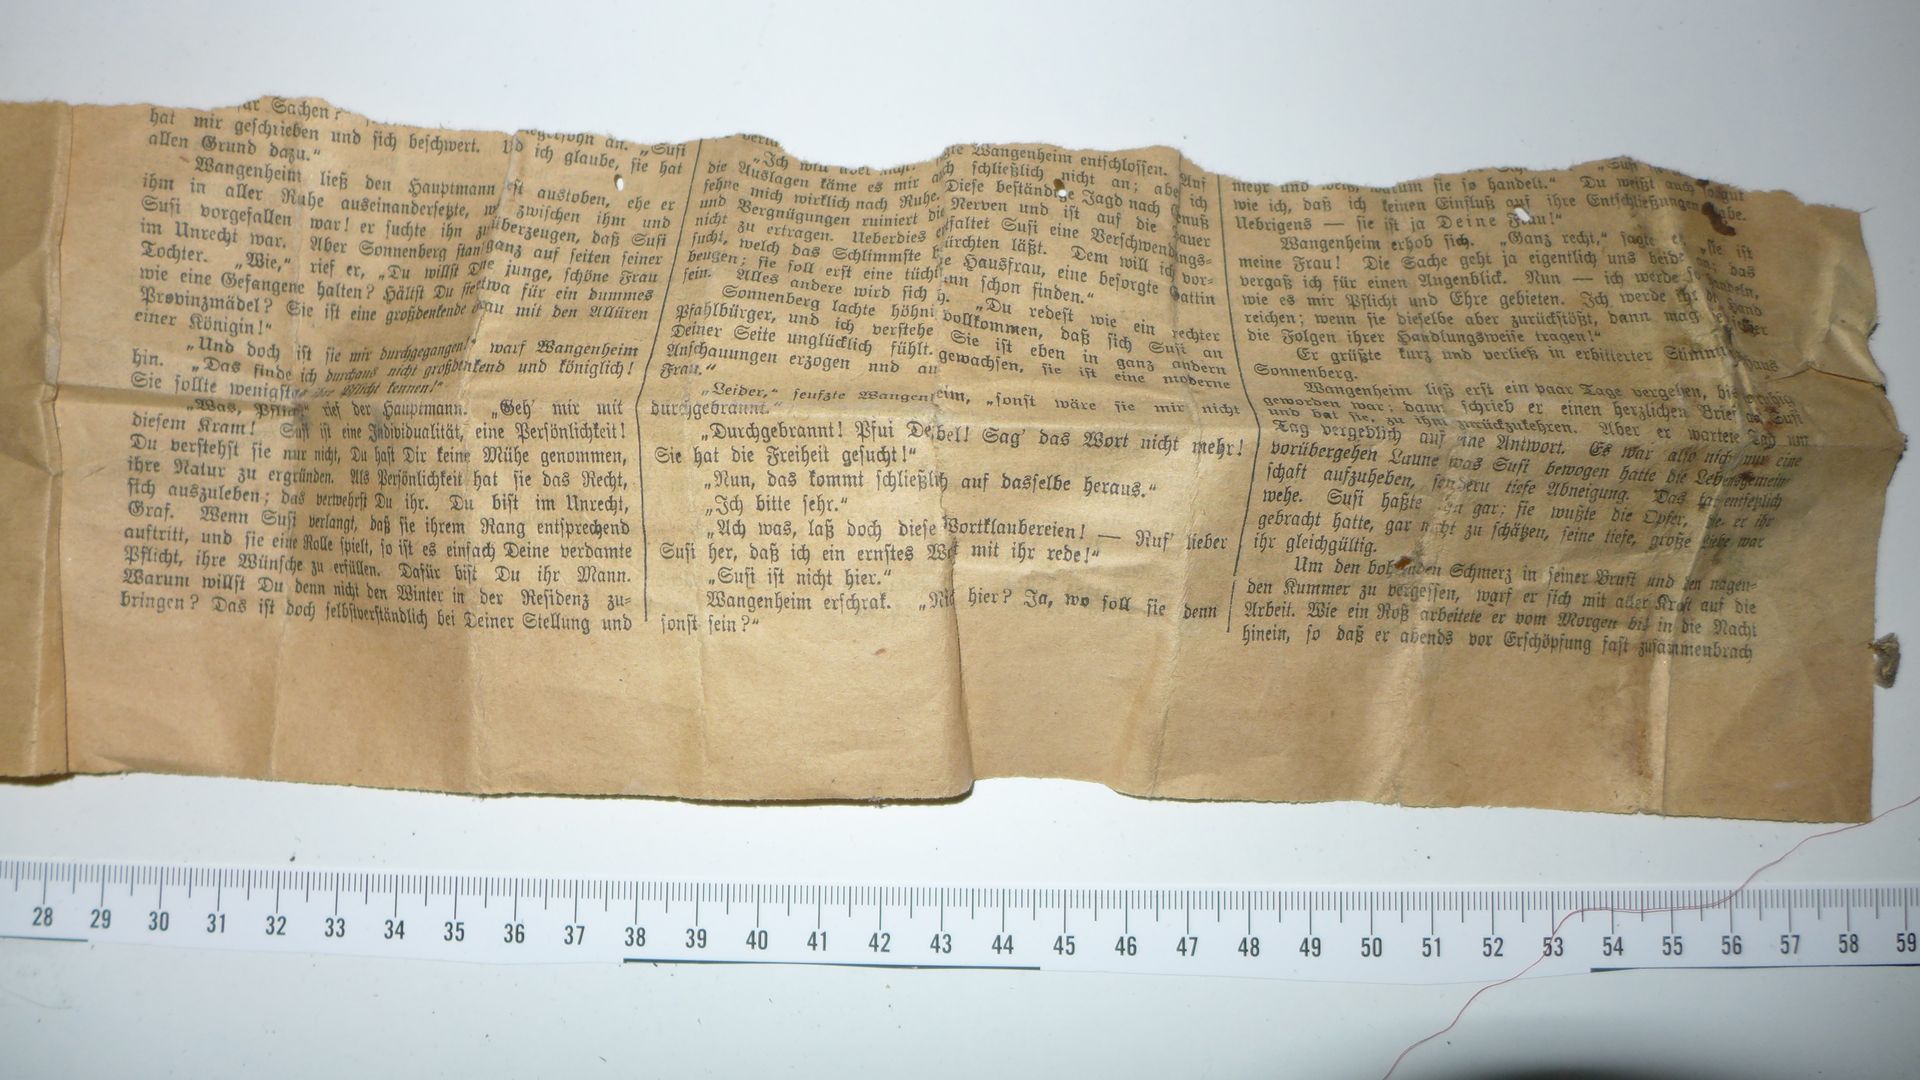 Sachen?
hat mir geschrieben und sich beschwert. ich glaube, sie hat
allen Grund dazu.“
Wangenheim ließ den Hauptmann erst austoben, ehe er
ihm in aller Ruhe auseinandersetzte, zwischen ihm und
Susi vorgefallen war! er suchte ihn zu überzeugen, daß Susi
im Unrecht war. Aber Sonnenberg stand ganz auf seiten seiner
Tochter. „Wie,“ rief er, „Du willst junge, schöne Frau
wie eine Gefangene halten? Hältst Du sie etwa für ein dummes
Provinzmädel? Sie ist eine großdenkende Frau mit den Allüren
einer Königin!“
„Und doch ist sie mir durchgegangen,“ warf Wangenheim
hin. „Das finde ich durchaus nicht großdenkend und königlich!
Sie sollte wenigstens ihre Pflicht kennen!“
„Was, Pflicht“ rief der Hauptmann. „Geh' mir mit
diesem Kram! Susi ist eine Individualität, eine Persönlichkeit!
Du verstehst sie nur nicht, Du hast Dir keine Mühe genommen,
ihre Natur zu ergründen. Als Persönlichkeit hat sie das Recht,
sich auszuleben; das verwehrst Du ihr. Du bist im Unrecht,
Graf. Wenn Susi verlangt, daß sie ihrem Rang entsprechend
auftritt, und sie eine Rolle spielt, so ist es einfach Deine verdamte
Pflicht, ihre Wünsche zu erfüllen. Dafür bist Du ihr Mann.
Warum willst Du denn nicht den Winter in der Residenz zu-
bringen? Das ist doch selbstverständlich bei Deiner Stellung und
„Ich will aber nicht! Wangenheim entschlossen. „Auf
die Auslagen käme es mir schließlich nicht an; aber ich
sehne mich wirklich nach Ruhe. Diese beständige Jagd nach Genuß
und Vergnügungen ruiniert die Nerven und ist auf die Dauer
nicht zu ertragen. Ueberdies entfaltet Susi eine Verschwendungs-
sucht, welch das Schlimmste befürchten läßt. Dem will ich vor-
beugen; sie soll erst eine tüchtige Hausfrau, eine besorgte Gattin
sein. Alles andere wird sich dann schon finden.“
Sonnenberg lachte höhnisch. „Du redest wie ein rechter
Pfahlbürger, und ich verstehe vollkommen, daß sich Susi an
Deiner Seite unglücklich fühlt. Sie ist eben in ganz andern
Anschauungen erzogen und aufgewachsen, sie ist eine moderne
Frau.“
„Leider,“ seufzte Wangenheim, „sonst wäre sie mir nicht
durchgebrannt.“
„Durchgebrannt! Pfui Deibel! Sag' das Wort nicht mehr!
Sie hat die Freiheit gesucht!“
„Nun, das kommt schließlich auf dasselbe heraus.“
„Ich bitte sehr.“
„Ach was, laß doch diese Wortklaubereien! — Ruf' lieber
Susi her, daß ich ein ernstes Wort mit ihr rede!“
„Susi ist nicht hier.“
Wangenheim erschrak. „Nicht hier? Ja, wo soll sie denn
sonst sein?“
mehr und warum sie so handelt.“ Du weißt auch so gut
wie ich, daß ich keinen Einfluß auf ihre Entschließungen habe.
Uebrigens — sie ist ja Deine Frau!“
Wangenheim erhob sich. „Ganz recht,“ sagte er, „sie ist
meine Frau! Die Sache geht ja eigentlich uns beide an; das
vergaß ich für einen Augenblick. Nun — ich werde so handeln,
wie es mir Pflicht und Ehre gebieten. Ich werde ihr die Hand
reichen; wenn sie dieselbe aber zurückstößt, dann mag sie
die Folgen ihrer Handlungsweise tragen!“
Er grüßte kurz und verließ in erbitterter Stimmung Haus
Sonnenberg.
Wangenheim ließ erst ein paar Tage vergehen, bis er ruhig
geworden war; dann schrieb er einen herzlichen Brief an Susi
und bat sie, zu ihm zurückzukehren. Aber er wartete Tag um
Tag vergeblich auf eine Antwort. Es war also nicht nur eine
vorübergehen Laune was Susi bewogen hatte die Lebensgemein-
schaft aufzuheben, sondern tiefe Abneigung. Das tat entsetzlich
wehe. Susi haßte ihn gar; sie wußte die Opfer, die er ihr
gebracht hatte, gar nicht zu schätzen, seine tiefe, große Liebe war
ihr gleichgültig.
Um den bohrenden Schmerz in seiner Brust und den nagen-
den Kummer zu vergessen, warf er sich mit aller Kraft auf die
Arbeit. Wie ein Roß arbeitete er vom Morgen bis in die Nacht
hinein, so daß er abends vor Erschöpfung fast zusammenbrach
28 29 30 31 32 33 34 35 36 37 38 39 40 41 42 43 44 45 46 47 48 49 50 51 52 53 54 55 56 57 58 59